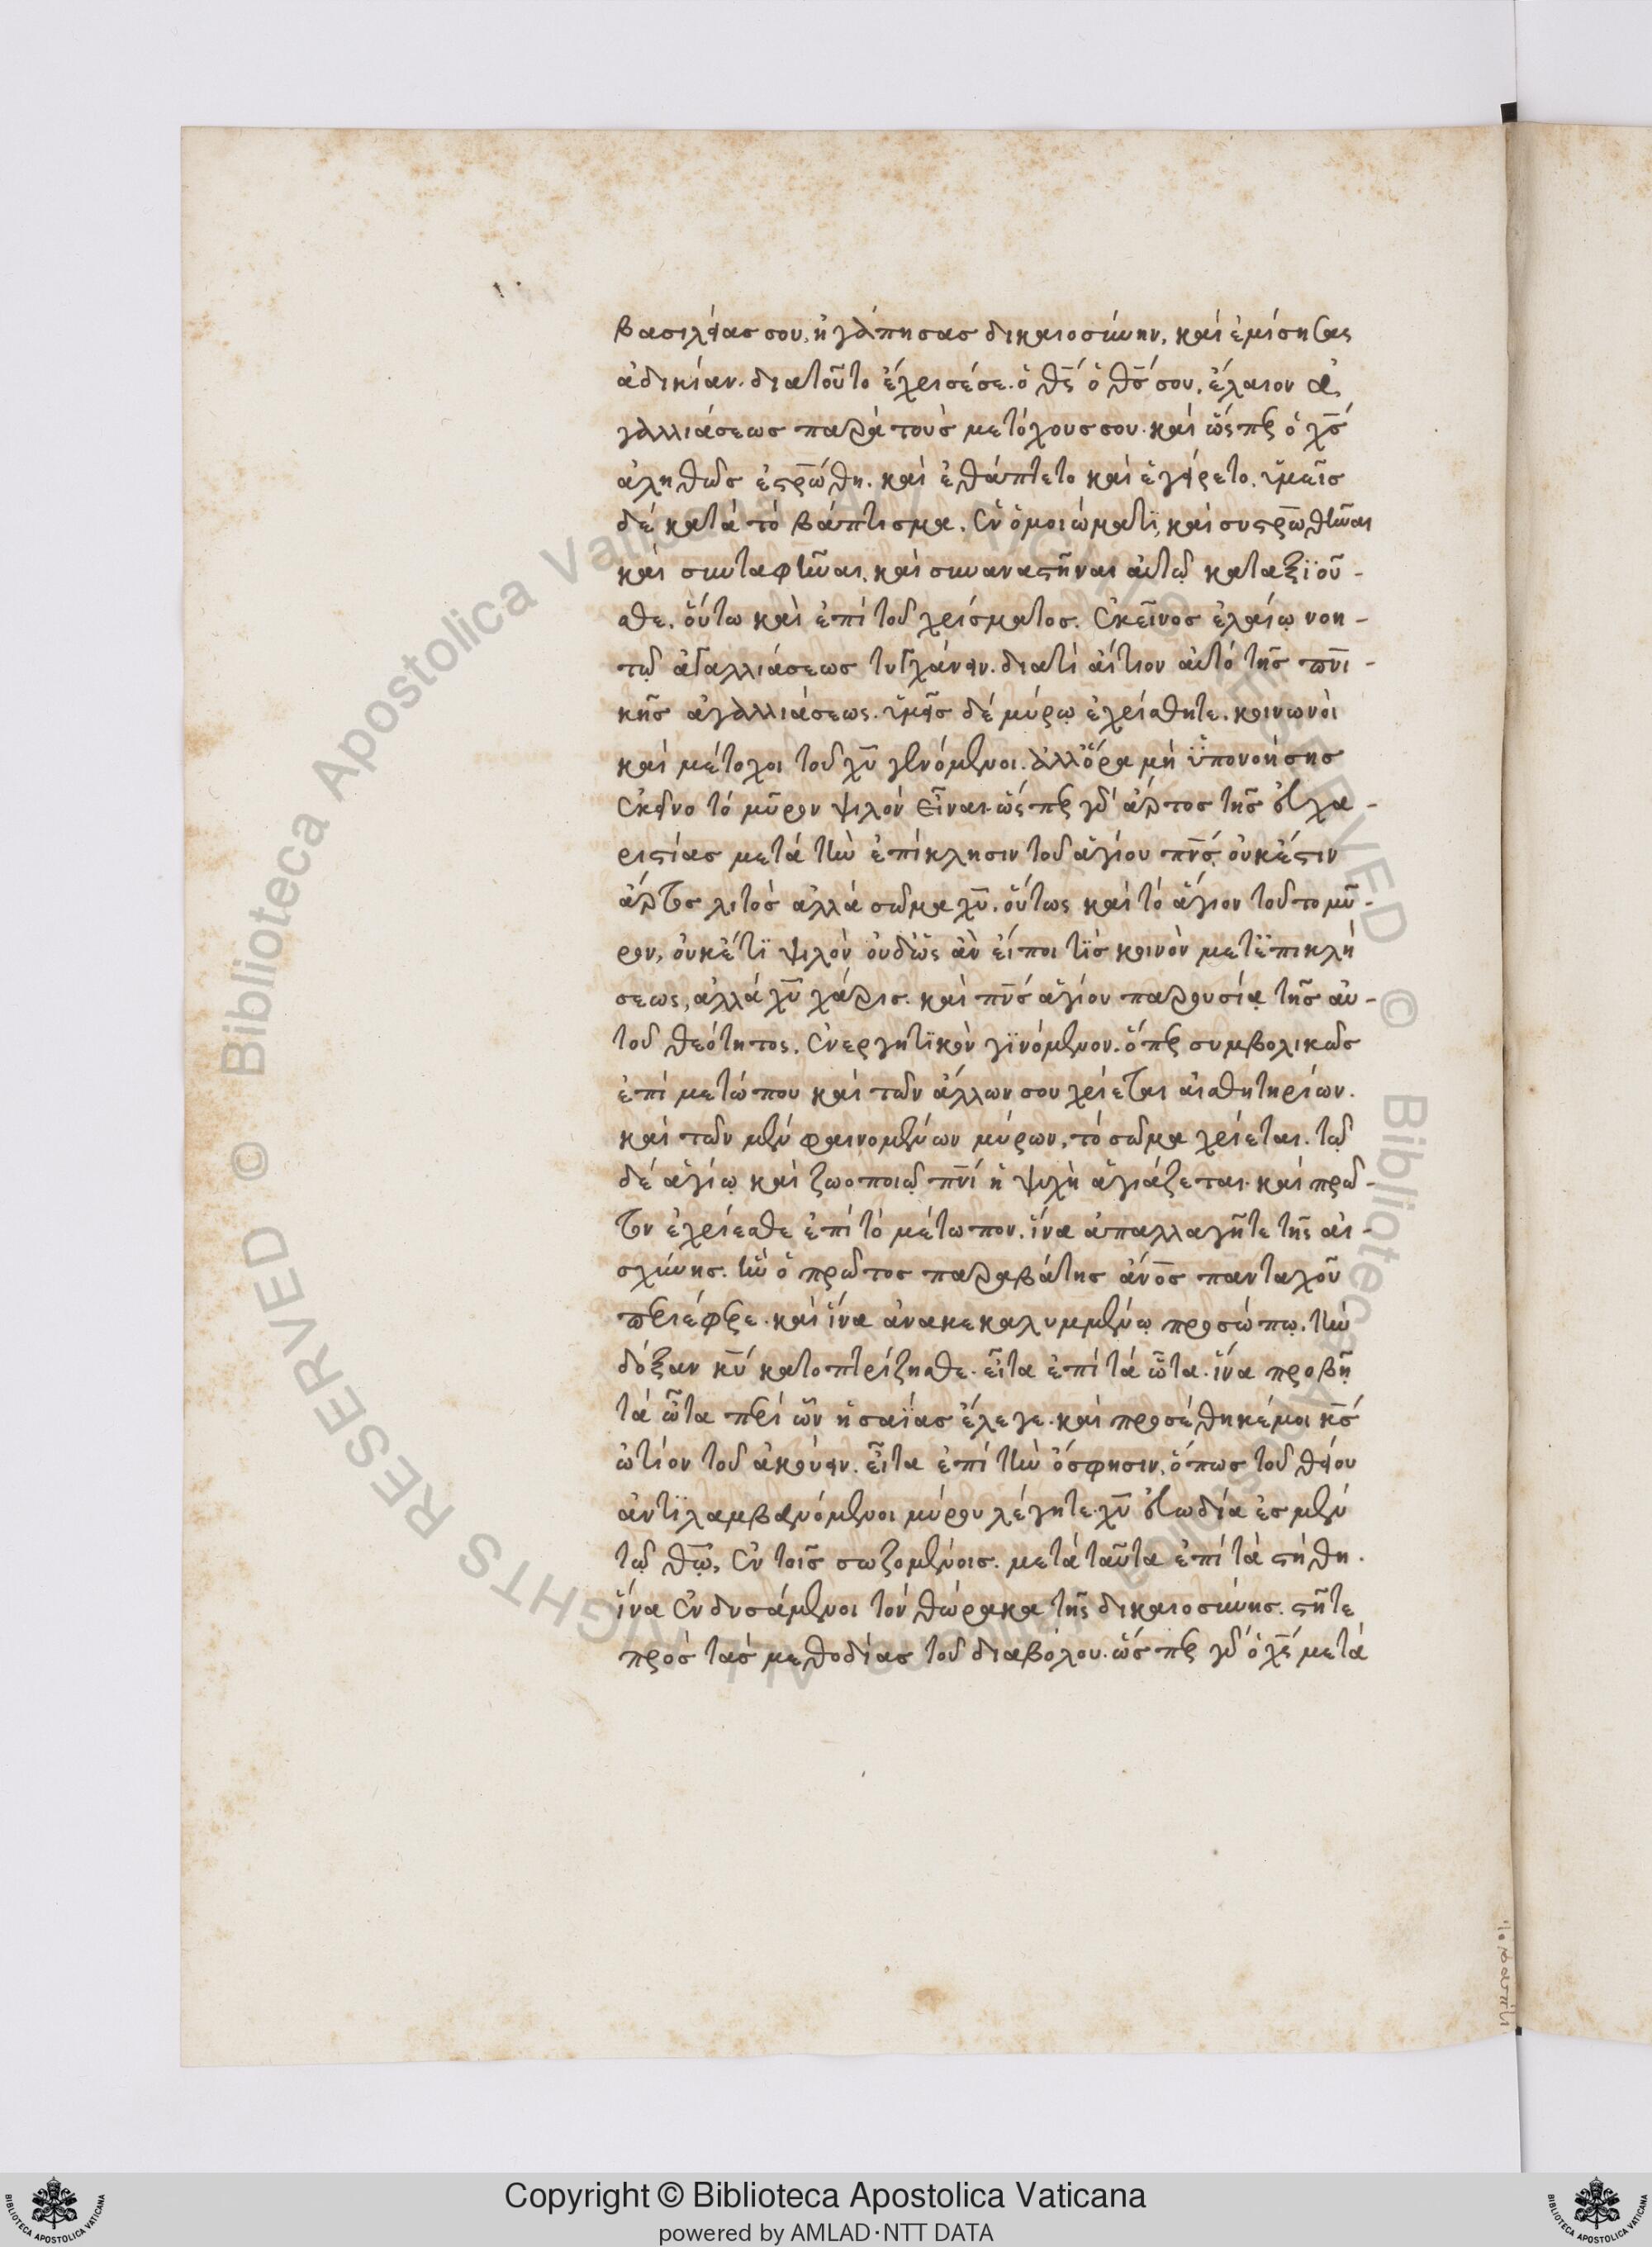 βασιλείας σου, ἠγάπησας δικαιοσύνην, καὶ ἐμίσησας
ἀδικίαν. διατοῦτο ἔχρισέσε. ὁ θς̅ ὁ θς̅ σου, ἔλαιον ἀ
γαλλιάσεως παρὰ τοὺς μετόχους σου. καὶ ὥσπερ ὁ χς̅
ἀληθῶς ἐστρώθη. καὶ ἐθάπτετο καὶ ἐγείρετο. ὑμεῖς
δὲ κατὰ τὸ βάπτισμα. ἐν ὁμοιώματϊ, καὶ συστρωθῆναι
καὶ συνταφῆναι, καὶ συναναστῆναι αὐτῷ καταξϊοῦ-
σθε. οὕτω καὶ ἐπὶ τοῦ χρίσματος. ἐκεῖνος ἐλαίῳ νοη-
τῷ ἀγαλλιάσεως τυγχάνειν. διατὶ αἴτιον αὐτὸ τῆς πνι̅-
κῆς ἀγαλλιάσεως. ὑμεῖς δὲ μύρῳ ἐχρίσθητε. κοινωνοὶ
καὶ μέτοχοι τοῦ χυ̅ γενόμενοι. ἀλλ' ὅρα μὴ ὑπονοήσης
ἐκεῖνο τὸ μῦρον ψιλὸν εἶναι. ὥσπερ γὰρ ἄρτος τῆς εὐχα-
ριστίας μετὰ τὴν ἐπίκλησιν τοῦ ἁγίου πνς̅ οὐκέστιν
ἄρτος λιτὸς ἀλλὰ σῶμα χυ̅. οὕτως καὶ τὸ ἅγιον τοῦτο μῦ-
ρον, οὐκέτϊ ψιλὸν οὐδὡς ἂν εἴποι τϊς κοινὸν μετἐπικλή
σεως, ἀλλὰ χυ̅ χάρις. καὶ πνς̅ ἁγίου παρουσίᾳ τῆς αὐ-
τοῦ θεότητος. ἐνεργητϊκὸν γϊνόμενον. ὅπερ συμβολικῶς
ἐπὶ μετώπου καὶ τῶν ἄλλων σου χρίεται αἰσθητηρίων.
καὶ τῶν μὲν φαινομένων μύρων, τὸ σῶμα χρίεται. τῷ
δὲ ἁγίῳ καὶ ζωοποιῷ πνι̅ ἡ ψυχὴ ἁγιάζεται. καὶ πρῶ-
τον ἐχρίεσθε ἐπὶ τὸ μέτωπον. ἵνα ἀπαλλαγῆτε τῆς αἰ-
σχύνης. ἣν ὁ πρῶτος παραβάτης ἄνο̅ς πανταχοῦ
περιέφερε. καὶ ἵνα ἀνακεκαλυμμένῳ προσώπῳ. τὴν
δόξαν κυ̅ κατοπτρίζησθε. εἶτα ἐπὶ τὰ ὦτα. ἵνα προβῇ
τὰ ὦτα περὶ ὧν ἡσαϊας ἔλεγε. καὶ προσέθηκέμοι κς̅
ὠτίον τοῦ ἀκούειν. εἶτα ἐπὶ τὴν ὄσφησιν, ὅπως τοῦ θείου
ἀντϊλαμβανόμενοι μύρου λέγητε. χυ̅ εὐωδία ἐσμὲν
τῷ θω̅, ἐν τοῖς σωζομένοις. μετὰ ταῦτα ἐπὶ τὰ στήθη.
ἵνα ἐνδυσάμενοι τὸν θώρακα τῆς δικαιοσύνης. στῆτε
πρὸς τὰς μεθοδίας τοῦ διαβόλου. ὥσπερ γὰρ ὁ χς̅ μετὰ
© Biblioteca Apostolica Vaticana ALL RIGHTS RESERVED © Biblioteca Apostolica Vaticana ALL RIGHTS RESERVED
Copyright © Biblioteca Apostolica Vaticana
powered by AMLAD·NTT DATA
BIBLIOTECA APOSTOLICA VATICANA
BIBLIOTECA APOSTOLICA VATICANA